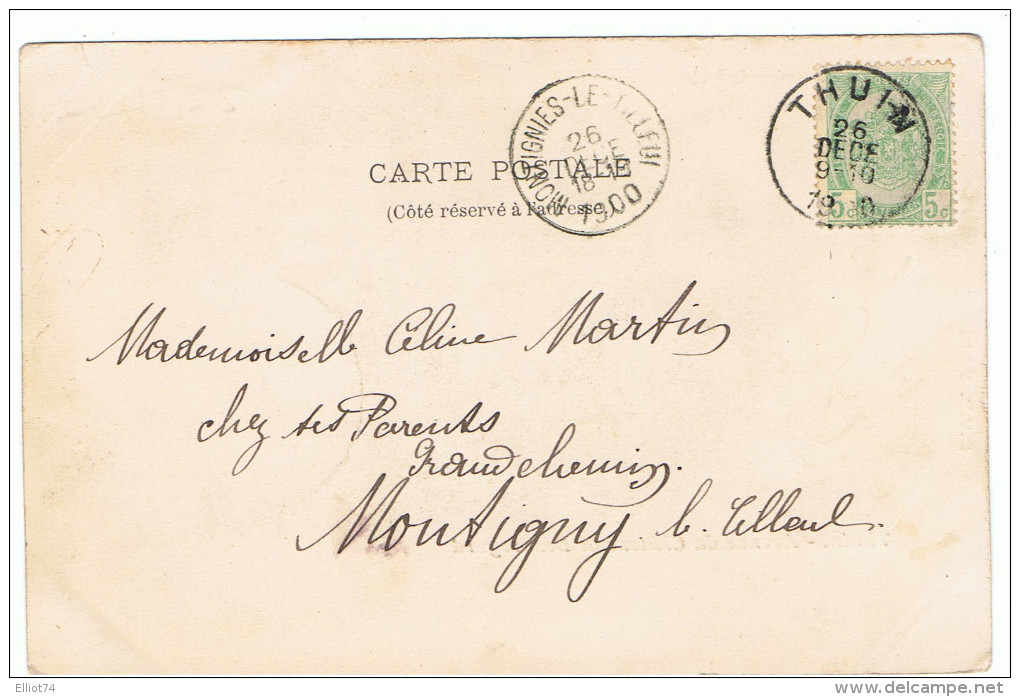 THUIN
26
DECE
9-10
19 0
5c 5c
MONTIGNIES-LE-TILLEUL
26
DECE
18
1900
CARTE POSTALE
(Côté réservé à l'adresse.)
Mademoiselle Céline Martin
chez ses Parents
Grand chemin.
Montigny l. Tilleul.
Elliot74
www.delcampe.net